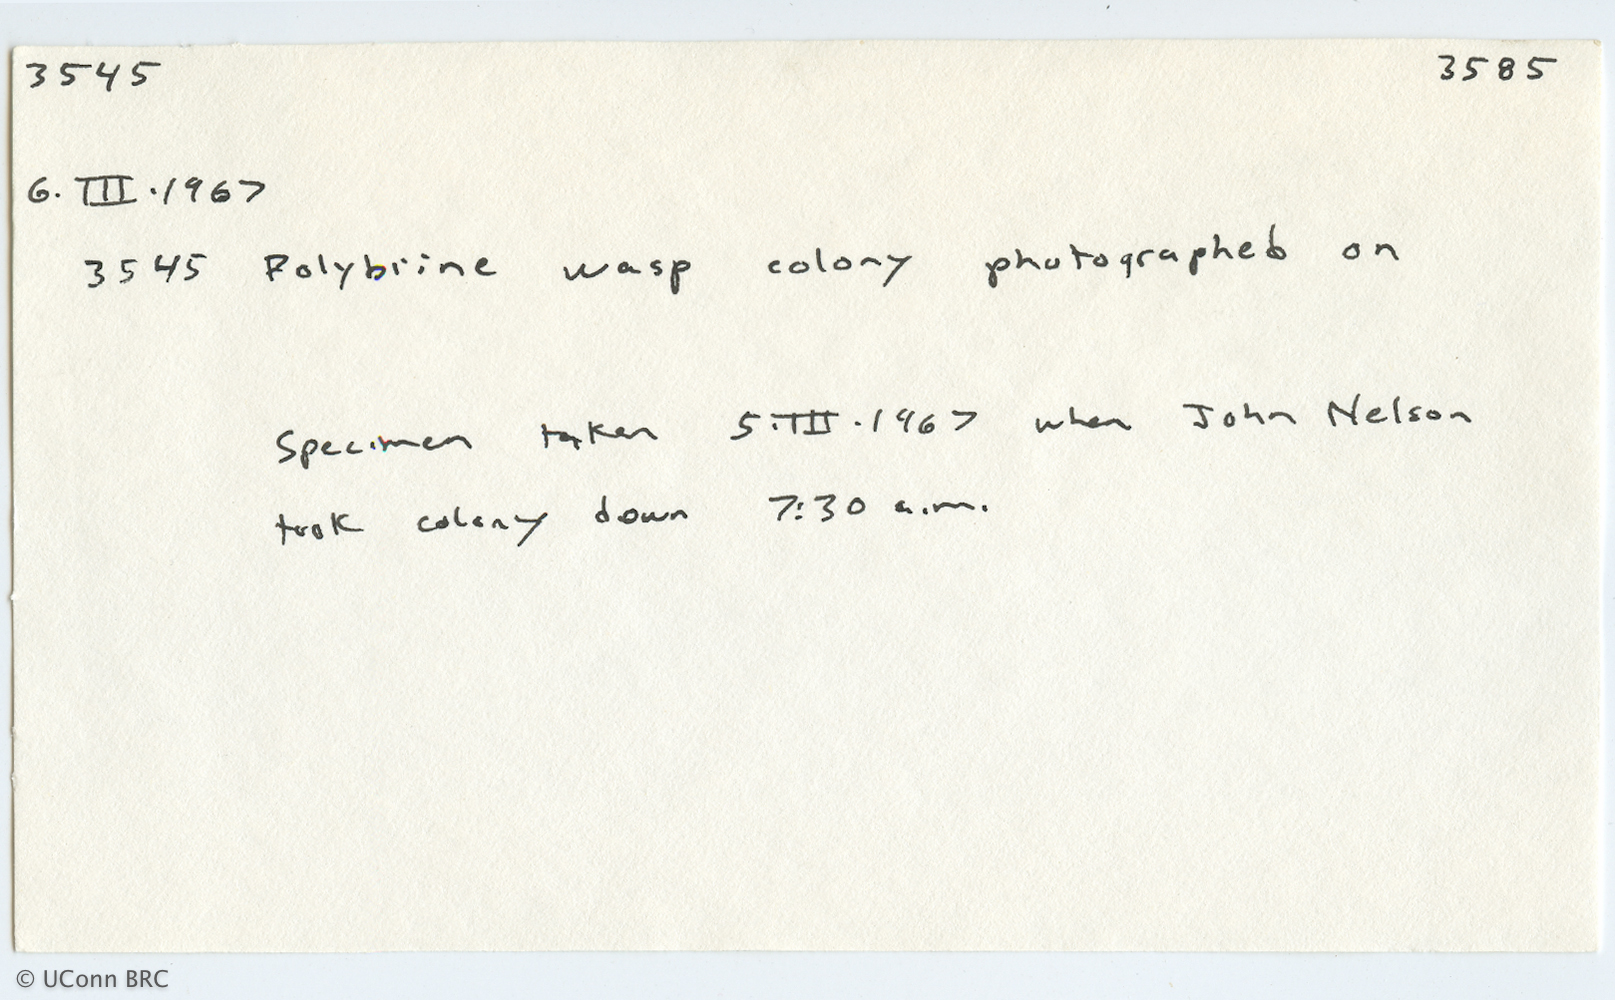 3545 3585
6.III.1967
3545 Polybiine wasp colony photographed on
Specimen taken 5.III.1967 when John Nelson
took colony down 7:30 a.m.
© UConn BRC